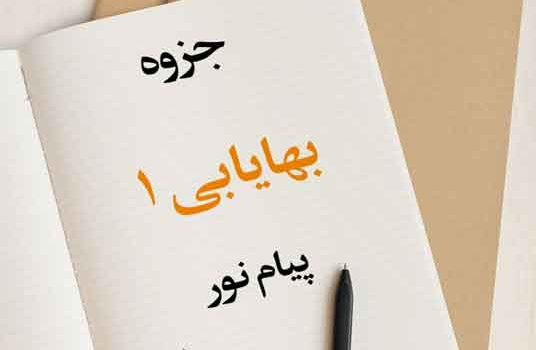 جزوه
بهایابی ۱
پیام نور